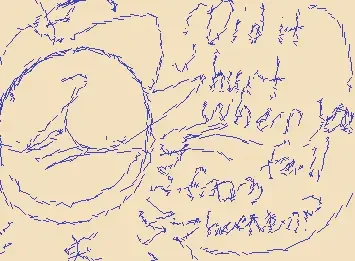 Did it
hurt
when yo
fell
from
heaven?